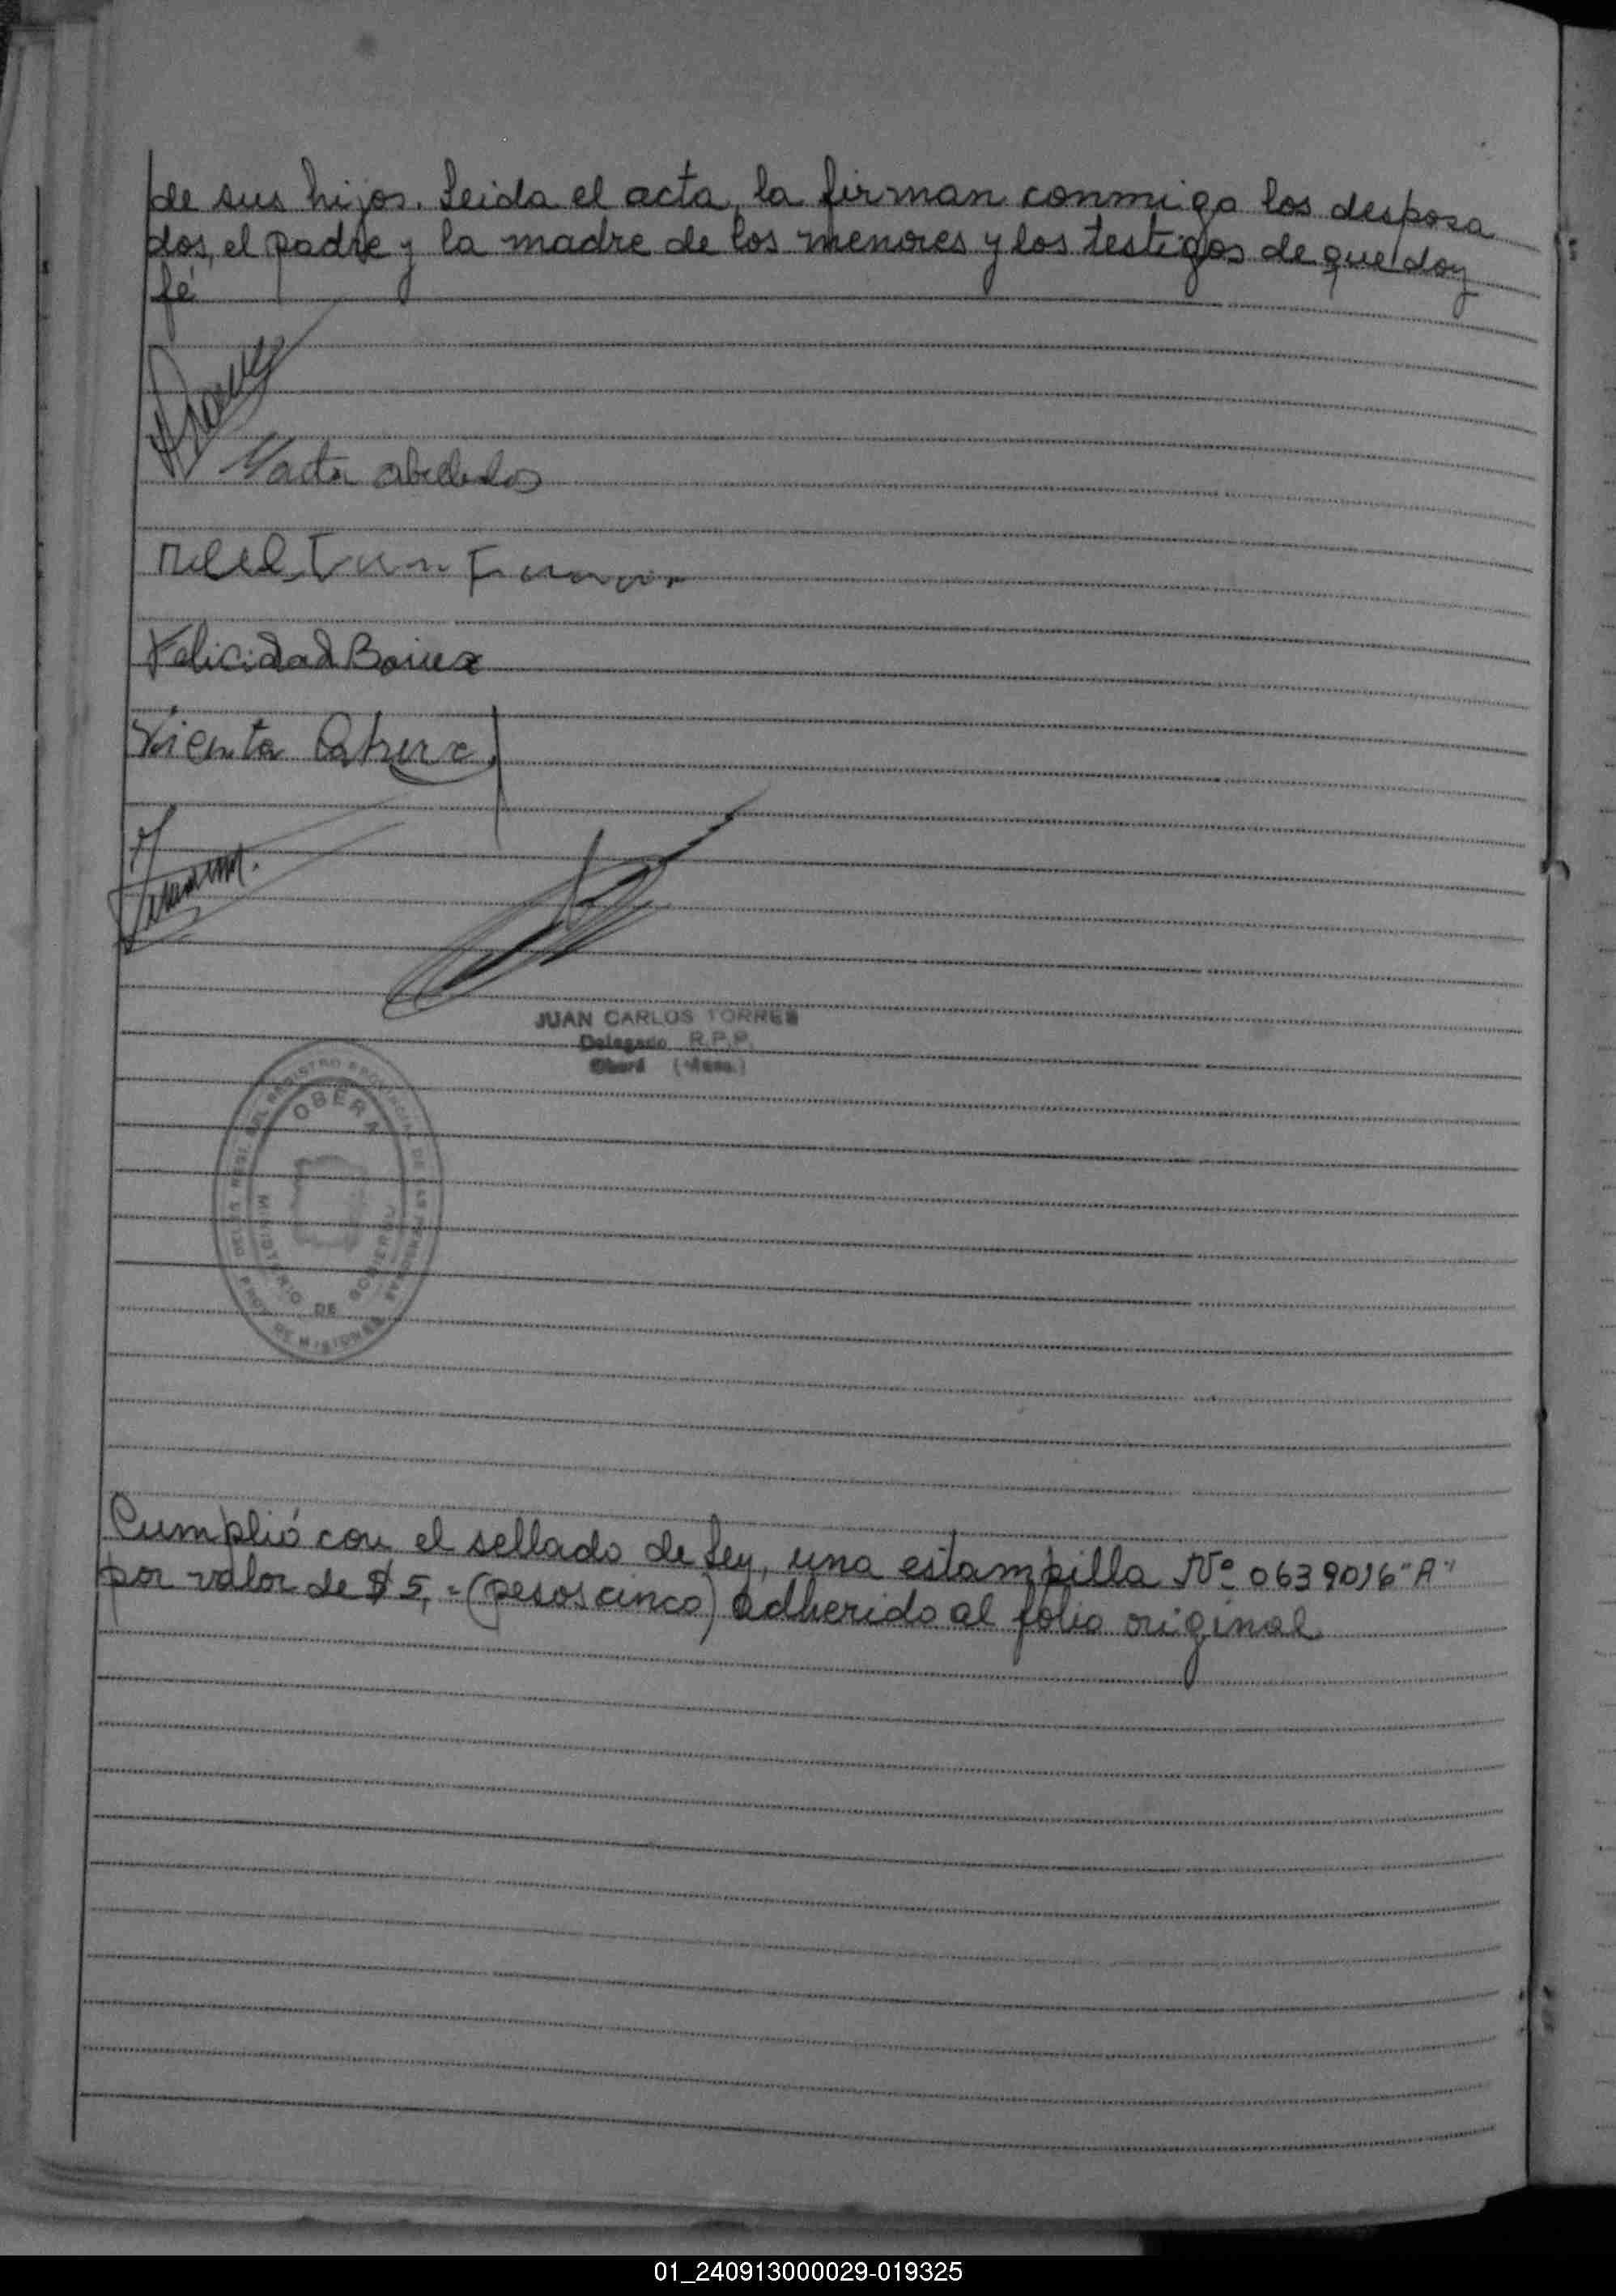 de sus hijos. Leida el acta, la firman conmigo los desposa
dos, el padre y la madre de los menores y los testigos de que doy
fé
Felicidad
Vicenta Cabrera
JUAN CARLOS TORRES
Delegado R.P.P.
Oberá
OBERA
MINISTERIO DE GOBIERNO
DEL REGISTRO PROVINCIAL DE LAS PERSONAS
PROV. DE MISIONES
Cumplió con el sellado de Ley, una estampilla Nº 0639016 "A"
por valor de $ 5,= (pesos cinco) adherido al folio original
01_240913000029-019325